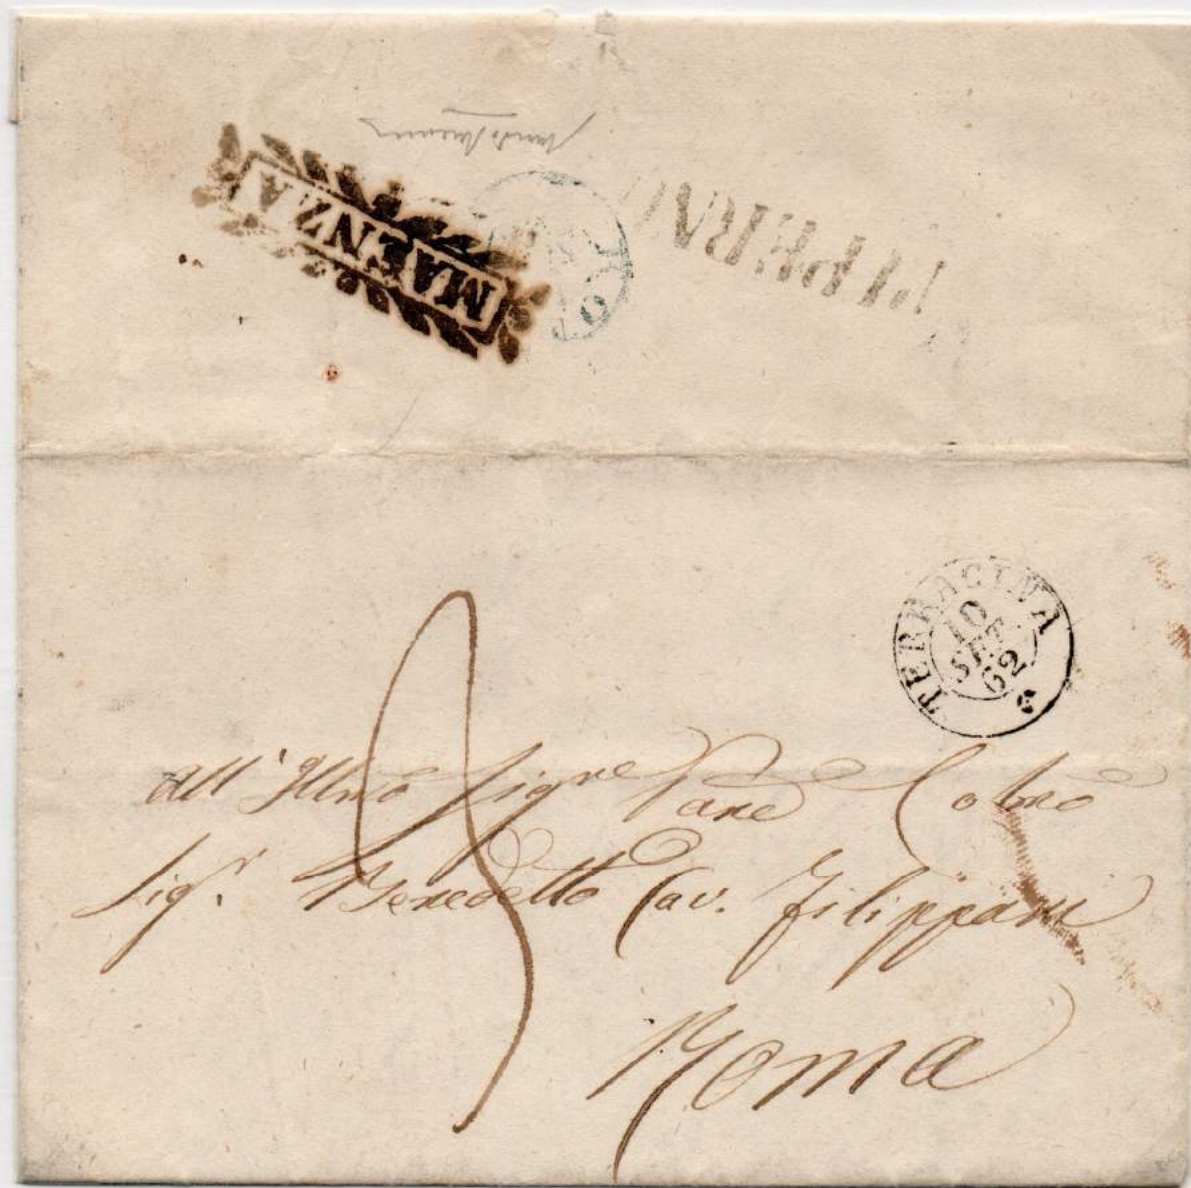 MAENZA
PIPERNO
RO
TERRACINA
10
SET
62
all' Illmo Sigre Pare Colmo
Sigr. Benedetto Cav. Filippani
Roma